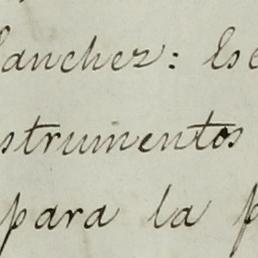 Sanchez: Es
strumentos
para la p